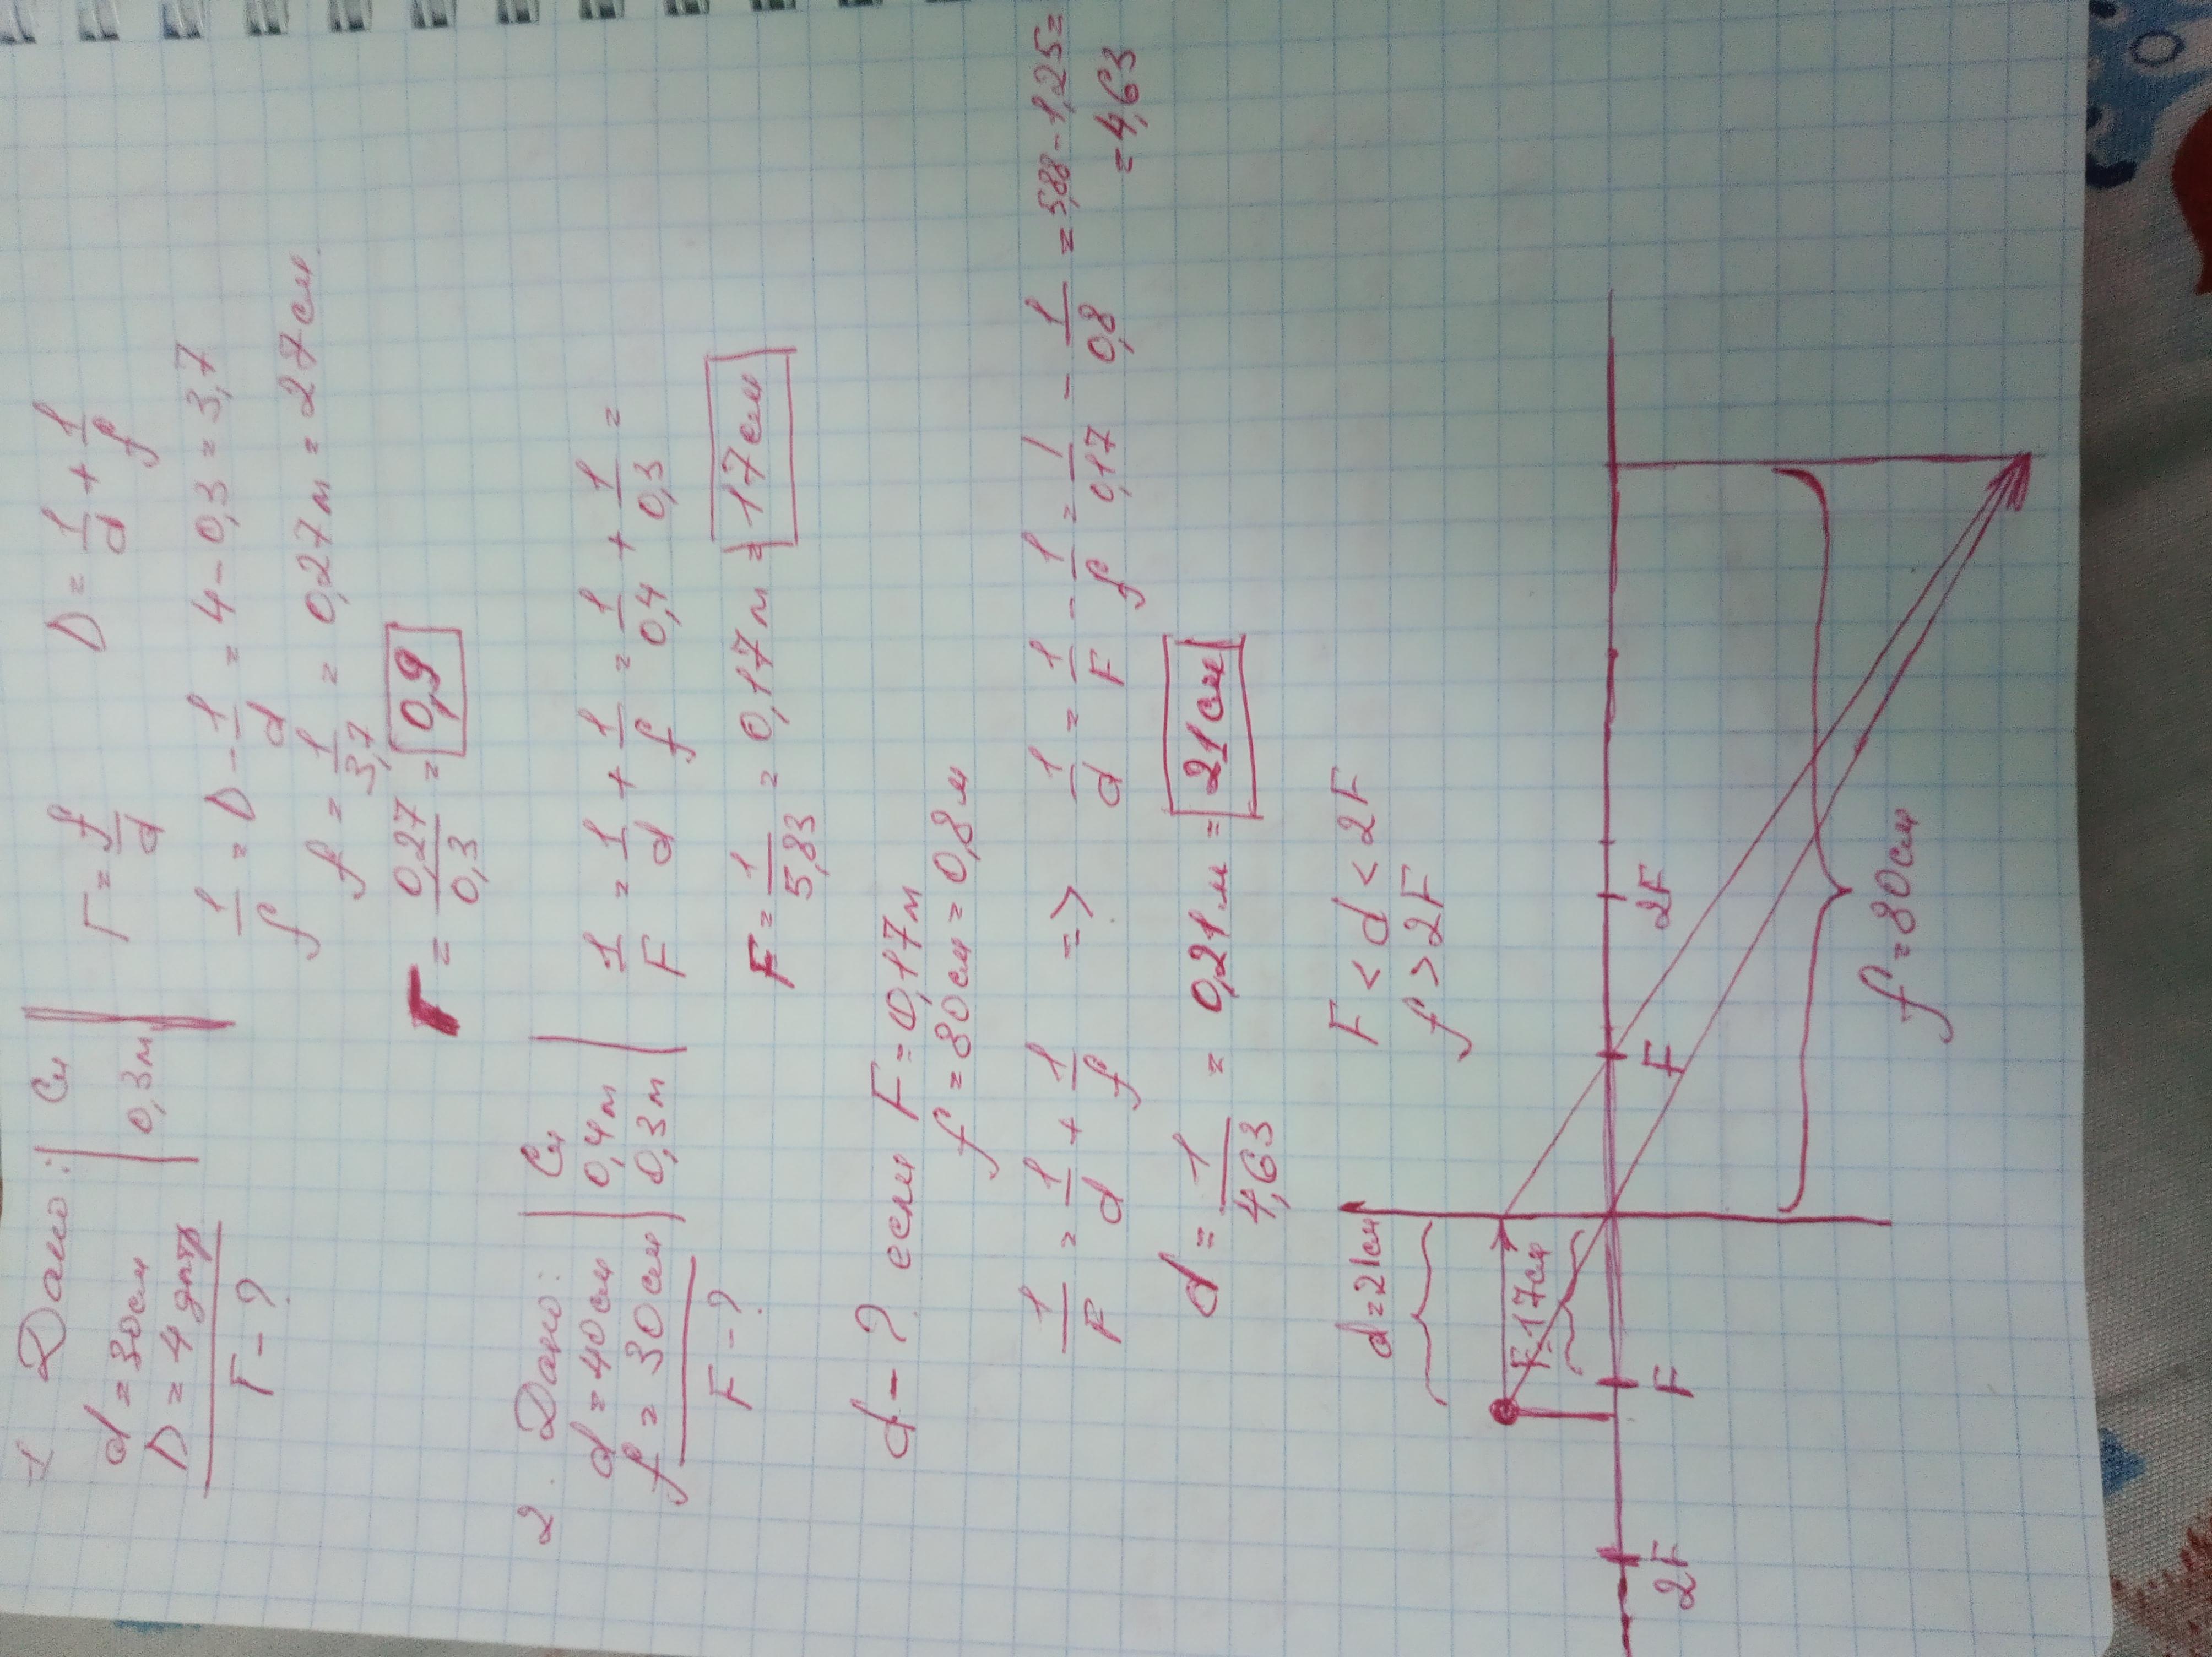 1 Дано: | Си
d = 30см | 0,3м
D = 4 дптр
Г - ?
Г = f/d D = 1/d + 1/f
1/f = D - 1/d = 4 - 0,3 = 3,7
f = 1/3,7 = 0,27м = 27см
Г = 0,27/0,3 = 0,9
2. Дано: | Си
d = 40см | 0,4м
f = 30см | 0,3м
F - ?
1/F = 1/d + 1/f = 1/0,4 + 1/0,3 =
F = 1/5,83 = 0,17м = 17см
d - ? если F = 0,17м
f = 80см = 0,8м
1/F = 1/d + 1/f => 1/d = 1/F - 1/f = 1/0,17 - 1/0,8 = 5,88 - 1,25 =
= 4,63
d = 1/4,63 = 0,21м = 21см
F < d < 2F
f > 2F
d = 21см
F=17см
2F F F 2F
f = 80см